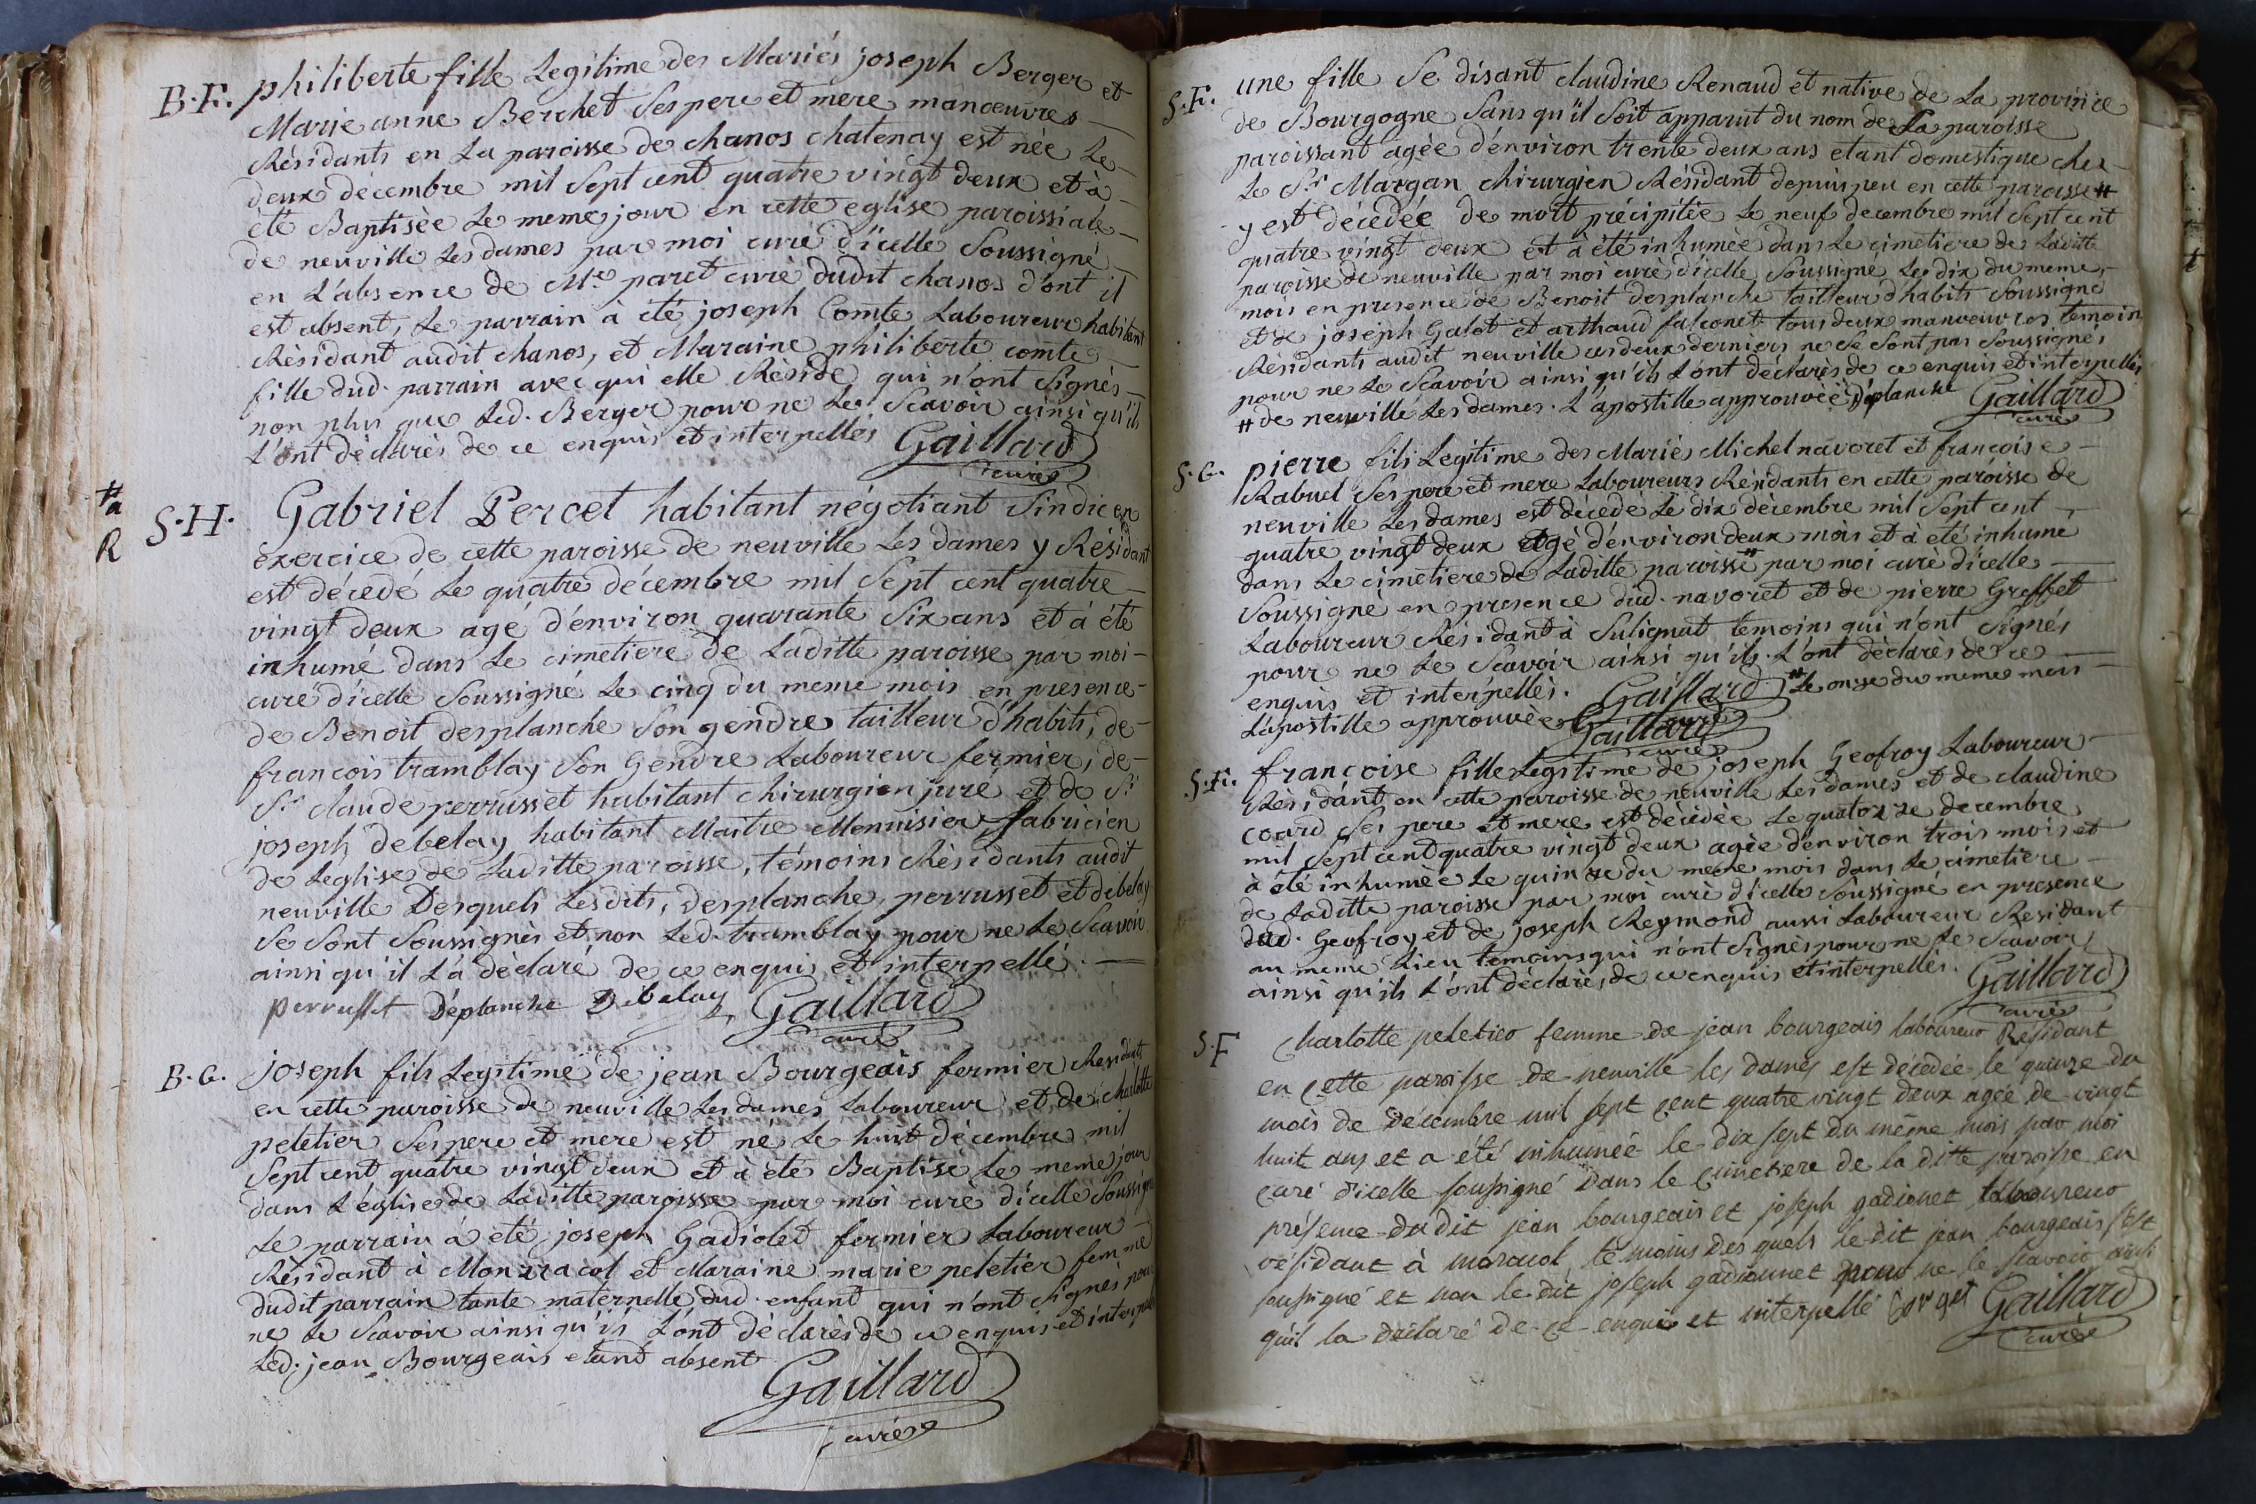 B.F. philiberte fille Legitime des Mariés joseph Berger et
Marie anne Berchet Ses pere et mere manœuvres
Résidants en La paroisse de chanos chatenay est née Le
deux décembre mil Sept cent quatre vingt deux et à
été Baptisée Le meme jour en cette eglise paroissiale
de neuville Les dames par moi curé d'icelle Soussigné
en L'absence de Mre paret curé dudit chanos d'ont il
est absent, Le parrain à été joseph Comte Laboureur habitant
Résidant audit chanos, et Maraine philiberte comte
fille dud. parrain avec qui elle Réside qui n'ont Signés
non plus que Led. Berger pour ne Le Scavoir ainsi qu'ils
L'ont déclarés de ce enquis et interpellés Gaillard
curé
#a
R
S.H. Gabriel Percet habitant négotiant Sindic en
éxercice de cette paroisse de neuville Les dames y Résidant
est décedé Le quatre décembre mil Sept cent quatre
vingt deux agé d'énviron quarante Six ans et à été
inhumé dans Le cimetiere de Laditte paroisse par moi
curé d'icelle Soussigné Le cinq du meme mois en presence
de Benoit desplanche Son gendre tailleur d'habits, de
francois tramblay Son Gendre Laboureur fermier, de
Sr claude perrusset habitant chirurgien juré et de Sr
joseph debelay habitant Maitre Menuisier fabricien
de L'église de Laditte paroisse, témoins Résidants audit
neuville Desquels Lesdits, desplanche, perrusset et debelay
Se Sont Soussignés et non Led. tramblay pour ne Le Scavoir
ainsi qu'il L'a déclaré de ce enquis et interpellé.
perrusset Déplanche Debelay Gaillard
curé
B.G. joseph fils Legitime de jean Bourgeais fermier Résidant
en cette paroisse de neuville Les dames Laboureur et de charlotte
peletier Ses pere et mere est né Le huit décembre mil
Sept cent quatre vingt deux et à été Baptisé Le meme jour
dans L'église de Laditte paroisse par moi curé d'icelle Soussigné
Le parrain à été joseph Gadiolet fermier Laboureur
Résidant à Monracol et Maraine marie peletier femme
dudit parrain tante maternelle dud. enfant qui n'ont Signés pour
ne Le Scavoir ainsi qu'ils L'ont déclarés de ce enquis et interpellés
Led. jean Bourgeais etant absent
Gaillard
curé
S.F. une fille Se disant claudine Renaud et native de La province
de Bourgogne Sans qu'il Soit apparut du nom de Sa paroisse
paroissant agée d'énviron trente deux ans etant domestique chez
Le Sr Margan chirurgien Résidant depuis peu en cette paroisse #
y est décedée de mort précipitée Le neuf decembre mil Sept cent
quatre vingt deux et à été inhumée dans Le cimetiere de Laditte
paroisse de neuville par moi curé d'icelle Soussigné Le dix du meme
mois en presence de Benoit desplanche tailleur d'habits Soussigné
et de joseph Galot et arthaud falconet tous deux manœuvres temoins
Résidants audit neuville ces deux derniers ne Se Sont pas Soussignés
pour ne Le Scavoir ainsi qu'ils L'ont déclarés de ce enquis et interpellés
# de neuville Les dames. L'apostille approuvée Déplanche Gaillard
curé
S.G. pierre fils Legitime des Mariés Michel navoret et françoise
Rabuel Ses pere et mere Laboureurs Résidants en cette paroisse de
neuville Les dames est decedé Le dix décembre mil Sept cent
quatre vingt deux agé d'énviron deux mois et à été inhumé
dans Le cimetiere de Laditte paroisse # par moi curé d'icelle
Soussigné en presence dud. navoret et de pierre Greffet
Laboureur Résidant à Sulignat temoins qui n'ont Signés
pour ne Le Scavoir ainsi qu'ils L'ont déclarés de ce
enquis et interpellés. Gaillard # Le onze du meme mois
L'apostille approuvée Gaillard curé
curé
S.F. françoise fille Legitime de joseph Geofroy Laboureur
Résidant en cette paroisse de neuville Les dames et de claudine
coard Ses pere et mere est décedée Le quatorze decembre
mil Sept cent quatre vingt deux agée d'environ trois mois et
à été inhumée Le quinze du meme mois dans Le cimetiere
de Laditte paroisse par moi curé d'icelle Soussigné en presence
dud. Geofroy et de joseph Reymond aussi Laboureur Residant
au meme Lieu temoins qui n'ont Signés pour ne Le Scavoir
ainsi qu'ils L'ont déclarés de ce enquis et interpellés. Gaillard
curé
S.F Charlotte peletier femme de jean bourgeais laboureur Residant
en cette paroisse de neuville les dames est décedée le quinze du
mois de décembre mil sept cent quatre vingt deux agée de vingt
huit ans et a été inhumée le dix sept du même mois par moi
curé d'icelle soussigné dans le cimetiere de la ditte paroisse en
présence dudit jean bourgeais et joseph gadiouet laboureur
résidant à moracol, témoins des quels le dit jean bourgeais s'est
soussigné et non le dit joseph gadiounet pour ne le scavoir ainsi
qu'il la déclaré de ce enquis et interpellé Gaillard
curé